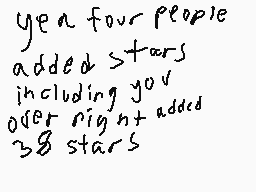 yea four people
added stars
including you
over night added
38 stars